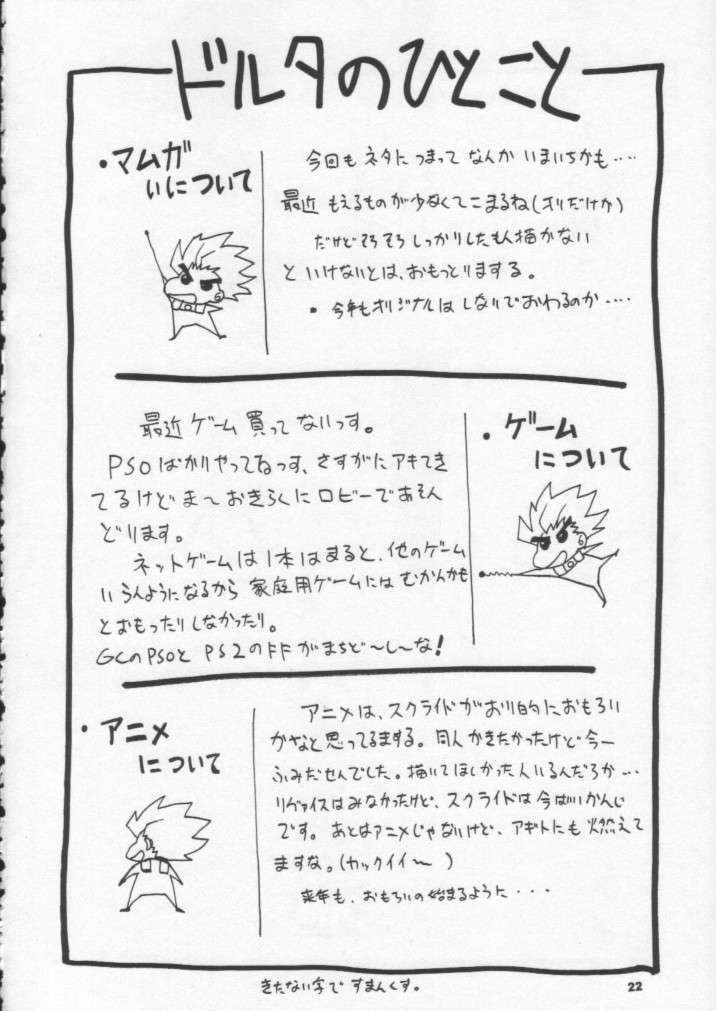 ドルタのひとこと
・マムガ
いについて
今回も ネタに つまって なんか いまいちかも・・・・
最近 もえるものが少なくてこまるね(オリだけか)
だけど そろそろ しっかりしたもん描かない
と いけないとは、おもっとりまする。
・今年もオリジナルは しないでおわるのか・・・・
・ゲーム
について
最近 ゲーム 買って ないっす。
PSOばかりやってるっす、さすがにアキてき
てるけど ま〜 おきらくに ロビーであそん
どります。
ネットゲームは1本はまると、他のゲーム
いらんようになるから 家庭用ゲームには むかんかも
とおもったりしなかったり。
GCのPSOと PS2のFFがまちど〜し〜な!
・アニメ
について
アニメは、スクライドがおり的におもろい
かなと思ってるまする。同人かきたかったけど今一
ふみだせんでした。描いてほしかった人いるんだろか・・・
リヴァイスはみなかったけど、スクライドは今ばいかんじ
です。あとはアニメじゃないけど、アギトにも燃えて
ますな。(カックイイ〜)
来年も、おもろいの始まるように・・・
きたない字で すまんくす。
22